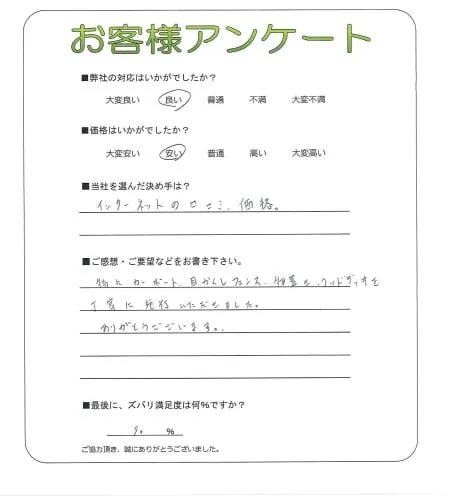 お客様アンケート
■弊社の対応はいかがでしたか?
大変良い 良い 普通 不満 大変不満
■価格はいかがでしたか?
大変安い 安い 普通 高い 大変高い
■当社を選んだ決め手は?
インターネットの口コミ、価格。
■ご感想・ご要望などをお書き下さい。
カーポート、目かくしフェンス、物置、ウッドデッキを
丁寧に施工いただきました。
ありがとうございます。
■最後に、ズバリ満足度は何%ですか?
90 %
ご協力頂き、誠にありがとうございました。